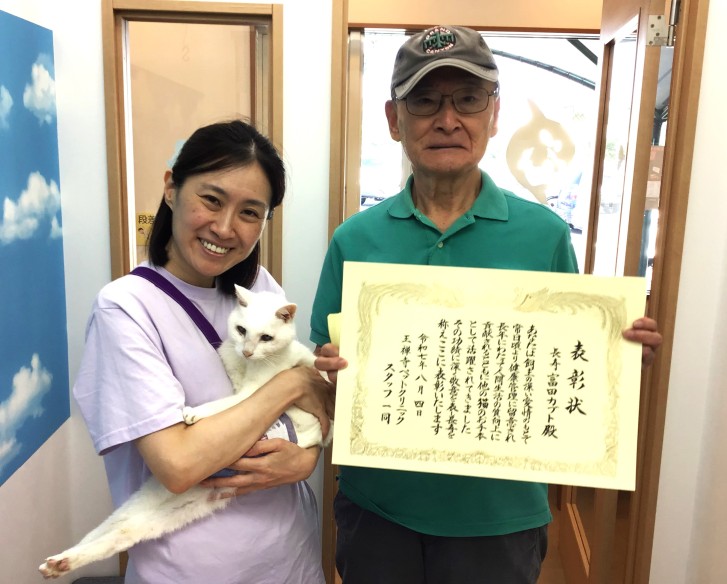 表彰状
長寿 富田カブト殿
あなたは飼主の深い愛情のもとで
常日頃より健康管理に留意され
長年にわたって人間生活の質向上に
貢献されるとともに他の猫のお手本
として活躍されてきました
その功績に深く敬意を表し長寿を
称えここに表彰いたします
令和七年八月四日
王禅寺ペットクリニック
スタッフ一同
段差